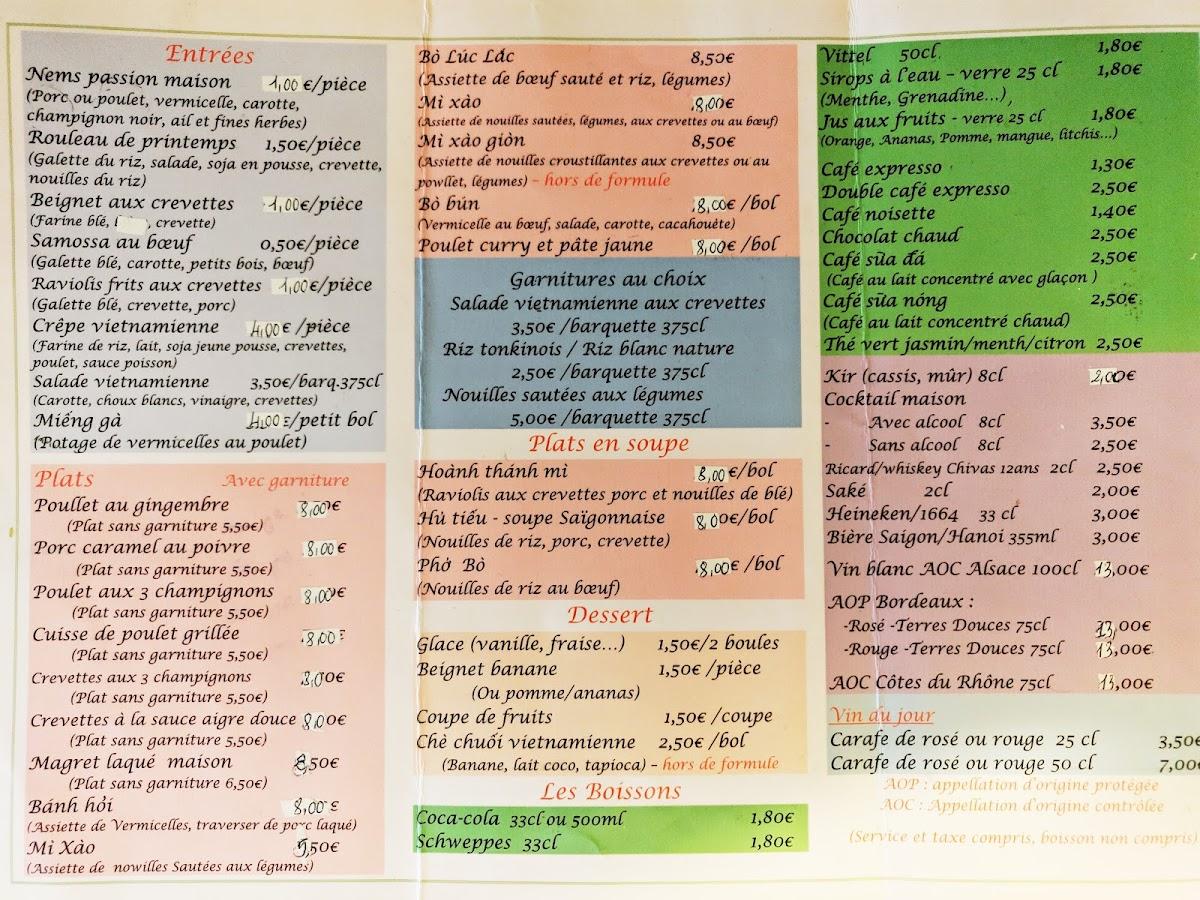 Entrées
Nems passion maison 1,00 €/pièce
(Porc ou poulet, vermicelle, carotte,
champignon noir, ail et fines herbes)
Rouleau de printemps 1,50€/pièce
(Galette du riz, salade, soja en pousse, crevette,
nouilles du riz)
Beignet aux crevettes 1,00€/pièce
(Farine blé, , crevette)
Samossa au bœuf 0,50€/pièce
(Galette blé, carotte, petits bois, bœuf)
Raviolis frits aux crevettes 1,00€/pièce
(Galette blé, crevette, porc)
Crêpe vietnamienne 4,00€ /pièce
(Farine de riz, lait, soja jeune pousse, crevettes,
poulet, sauce poisson)
Salade vietnamienne 3,50€/barq.375cl
(Carotte, choux blancs, vinaigre, crevettes)
Miếng gà 4,00€/petit bol
(Potage de vermicelles au poulet)
Plats Avec garniture
Poullet au gingembre 8,00€
(Plat sans garniture 5,50€)
Porc caramel au poivre 8,00€
(Plat sans garniture 5,50€)
Poulet aux 3 champignons 8,00€
(Plat sans garniture 5,50€)
Cuisse de poulet grillée 8,00€
(Plat sans garniture 5,50€)
Crevettes aux 3 champignons 8,00€
(Plat sans garniture 5,50€)
Crevettes à la sauce aigre douce 8,00€
(Plat sans garniture 5,50€)
Magret laqué maison 8,50€
(Plat sans garniture 6,50€)
Bánh hỏi 8,00€
(Assiette de Vermicelles, traverser de porc laqué)
Mì Xào 5,50€
(Assiette de nowilles Sautées aux légumes)
Bò Lúc Lắc 8,50€
(Assiette de bœuf sauté et riz, légumes)
Mì xào 8,00€
(Assiette de nouilles sautées, légumes, aux crevettes ou au bœuf)
Mì xào giòn 8,50€
(Assiette de nouilles croustillantes aux crevettes ou au
powllet, légumes) – hors de formule
Bò bún 8,00€ /bol
(Vermicelle au bœuf, salade, carotte, cacahouète)
Poulet curry et pâte jaune 8,00€ /bol
Garnitures au choix
Salade vietnamienne aux crevettes
3,50€ /barquette 375cl
Riz tonkinois / Riz blanc nature
2,50€ /barquette 375cl
Nouilles sautées aux légumes
5,00€ /barquette 375cl
Plats en soupe
Hoành thánh mì 8,00€/bol
(Raviolis aux crevettes porc et nouilles de blé)
Hủ tiếu - soupe Saïgonnaise 8,00€/bol
(Nouilles de riz, porc, crevette)
Phở Bò 8,00€ /bol
(Nouilles de riz au bœuf)
Dessert
Glace (vanille, fraise...) 1,50€/2 boules
Beignet banane 1,50€ /pièce
(Ou pomme/ananas)
Coupe de fruits 1,50€ /coupe
Chè chuối vietnamienne 2,50€ /bol
(Banane, lait coco, tapioca) – hors de formule
Les Boissons
Coca-cola 33cl ou 500ml 1,80€
Schweppes 33cl 1,80€
Vittel 50cl 1,80€
Sirops à l'eau – verre 25 cl 1,80€
(Menthe, Grenadine...),
Jus aux fruits - verre 25 cl 1,80€
(Orange, Ananas, Pomme, mangue, litchis...)
Café expresso 1,30€
Double café expresso 2,50€
Café noisette 1,40€
Chocolat chaud 2,50€
Café sữa đá 2,50€
(Café au lait concentré avec glaçon )
Café sữa nóng 2,50€
(Café au lait concentré chaud)
Thé vert jasmin/menth/citron 2,50€
Kir (cassis, mûr) 8cl 2,00€
Cocktail maison
- Avec alcool 8cl 3,50€
- Sans alcool 8cl 2,50€
Ricard/whiskey Chivas 12ans 2cl 2,50€
Saké 2cl 2,00€
Heineken/1664 33 cl 3,00€
Bière Saigon/Hanoi 355ml 3,00€
Vin blanc AOC Alsace 100cl 13,00€
AOP Bordeaux :
-Rosé -Terres Douces 75cl 13,00€
-Rouge -Terres Douces 75cl 13,00€
AOC Côtes du Rhône 75cl 13,00€
Vin du jour
Carafe de rosé ou rouge 25 cl 3,50€
Carafe de rosé ou rouge 50 cl 7,00€
AOP : appellation d'origine protégée
AOC : Appellation d'origine contrôlée
(Service et taxe compris, boisson non compris)